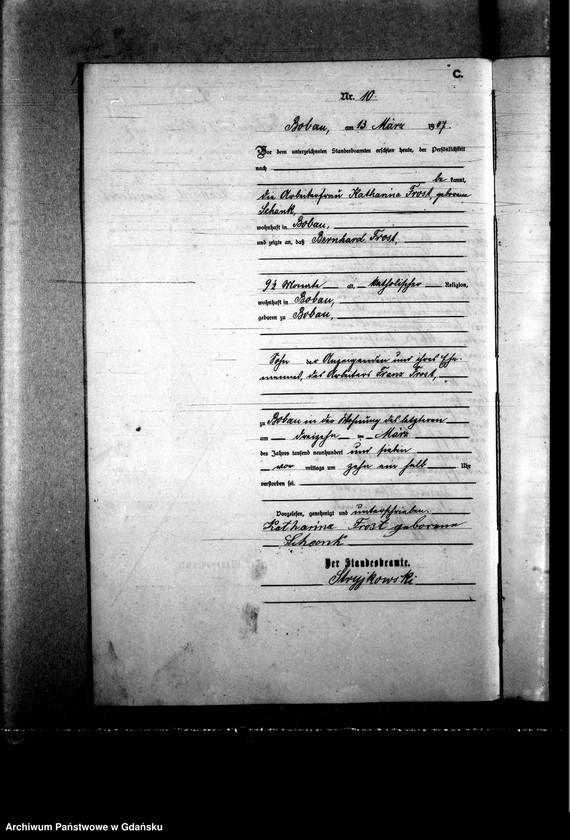 C.
Nr. 10.
Bobau, am 13 März 1907.
Vor dem unterzeichneten Standesbeamten erschien heute, der Persönlichkeit
nach
be kannt,
die Arbeiterfrau Katharina Frost, geborene
Schank,
wohnhaft in Bobau,
und zeigte an, daß Bernhard Frost,
9½ Monate alt, katholischer Religion,
wohnhaft in Bobau,
geboren zu Bobau,
Sohn der Anzeigenden und ihres Ehe-
mannes, des Arbeiters Franz Frost,
zu Bobau in der Wohnung des letzteren
am dreizehn ten März
des Jahres tausend neunhundert und sieben
vor mittags um zehn ein halb Uhr
verstorben sei.
Vorgelesen, genehmigt und unterschrieben.
Katharina Frost geborene
Der Standesbeamte.
Stryjkowski
Archiwum Państwowe w Gdańsku